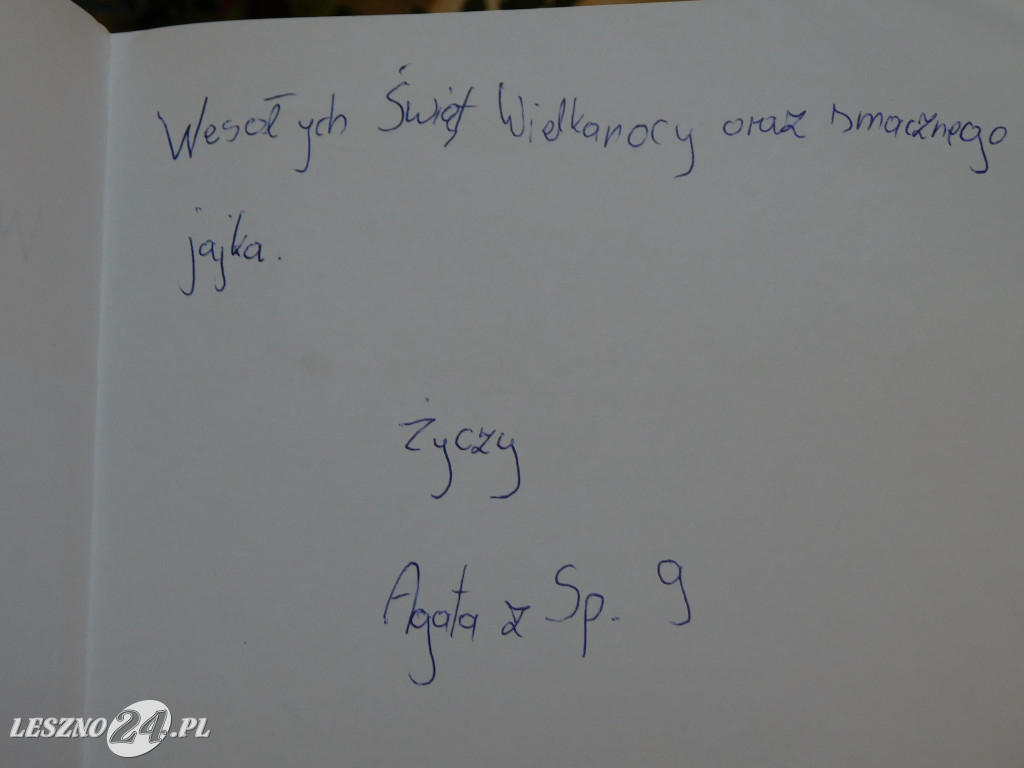 Wesołych Święt Wielkanocy oraz smacznego
jajka.
Życzy
Agata z Sp. 9
LESZNO24.PL